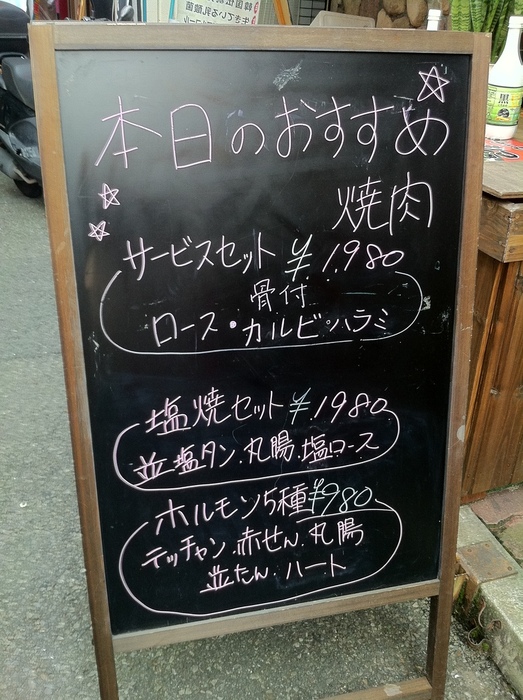 本日のおすすめ
焼肉
サービスセット ¥1,980
骨付
ロース・カルビ・ハラミ
塩焼セット ¥1980
並塩タン.丸腸.塩ロース
ホルモン5種¥980
テッチャン.赤せん.丸腸
並たん.ハート
黒